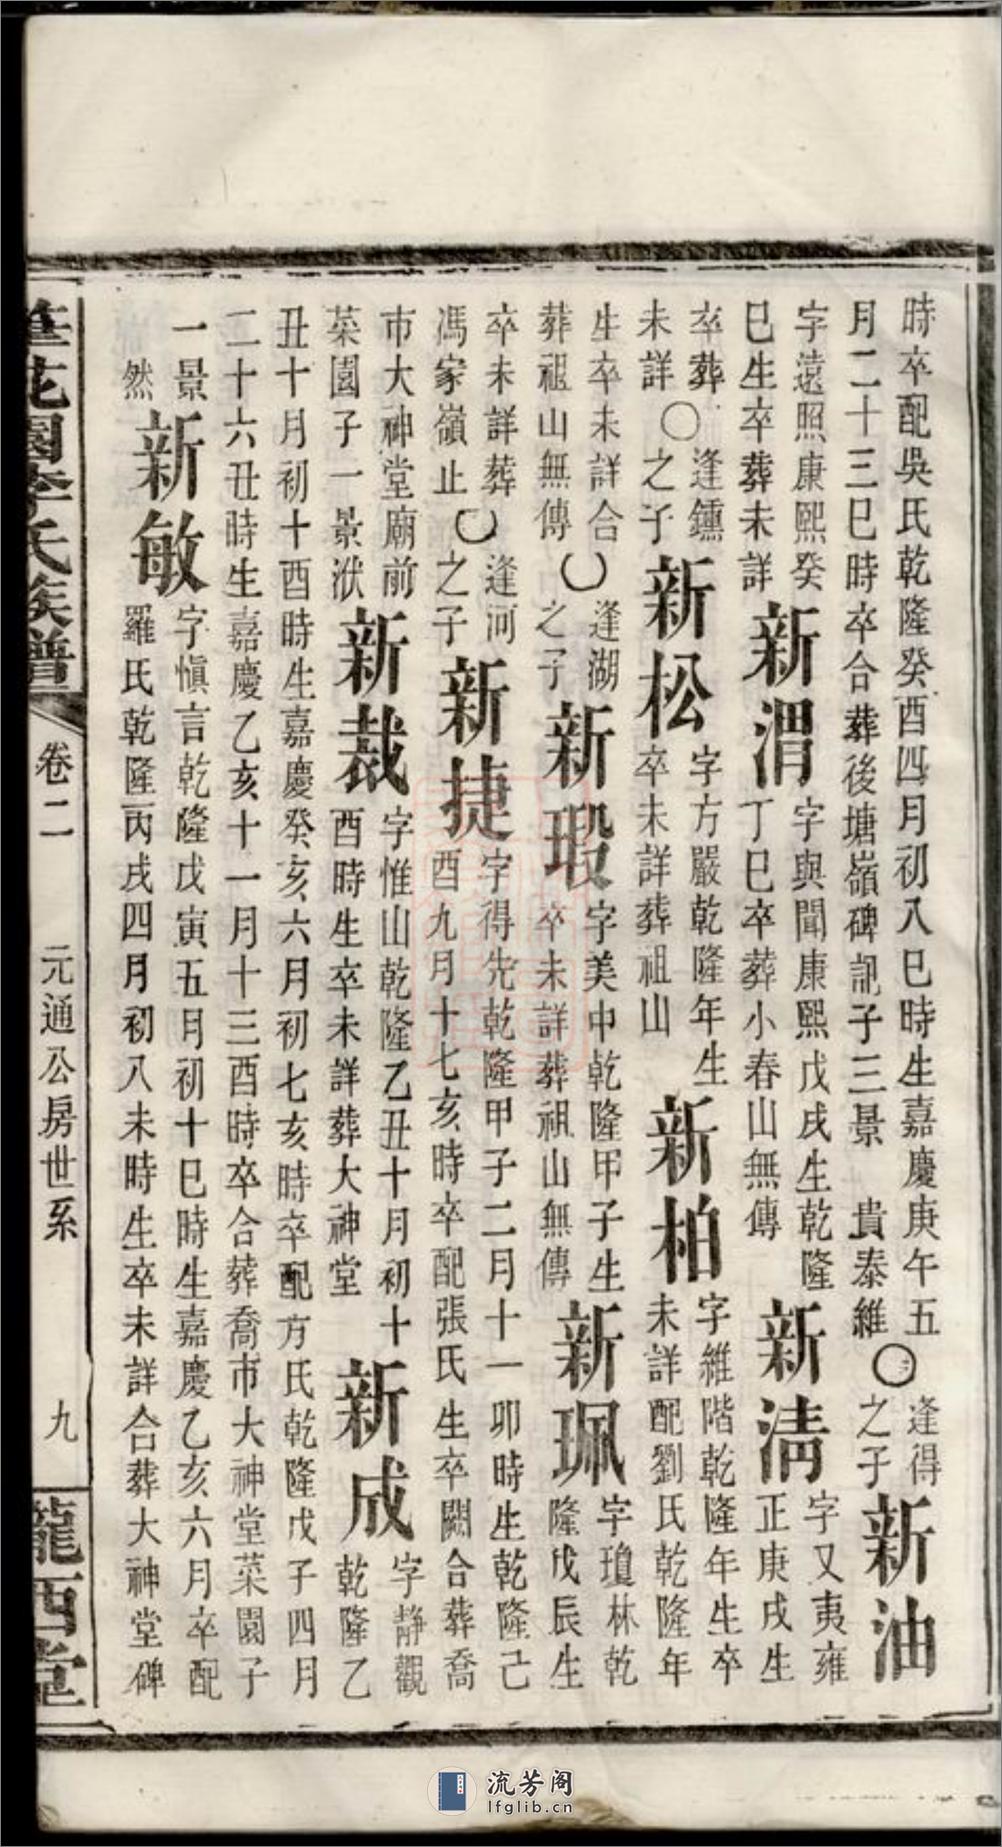 時卒配吳氏乾隆癸酉四月初八巳時生嘉慶庚午五
月二十三巳時卒合葬後塘嶺碑訊子三景 貴泰維
〇 逢得
之子
新油
字遠照康熙癸
巳生卒葬未詳
新渭
字與聞康熙戊戌生乾隆
丁巳卒葬小春山無傳
新淸
字又夷雍
正庚戌生
卒葬
未詳
〇 逢鍾
之子
新松
字方嚴乾隆年生
卒未詳葬祖山
新柏
字維階乾隆年生卒
未詳配劉氏乾隆年
生卒未詳合
葬祖山無傳
〇 逢湖
之子
新瑕
字美中乾隆甲子生
卒未詳葬祖山無傳
新珮
字瓊林乾
隆戊辰生
卒未詳葬
馮家嶺止
〇 逢河
之子
新捷
字得先乾隆甲子二月十一卯時生乾隆己
酉九月十七亥時卒配張氏生卒闕合葬喬
市大神堂廟前
菜園子一景洑
新裁
字惟山乾隆乙丑十月初十
酉時生卒未詳葬大神堂
新成
字靜觀
乾隆乙
丑十月初十酉時生嘉慶癸亥六月初七亥時卒配方氏乾隆戊子四月
二十六丑時生嘉慶乙亥十一月十三酉時卒合葬喬市大神堂菜園子
一景
然
新敏
字愼言乾隆戊寅五月初十巳時生嘉慶乙亥六月卒配
羅氏乾隆丙戌四月初八未時生卒未詳合葬大神堂碑
花園李氏族譜
卷二
元通公房世系
九
隴西堂
流芳阁
lfglib.cn